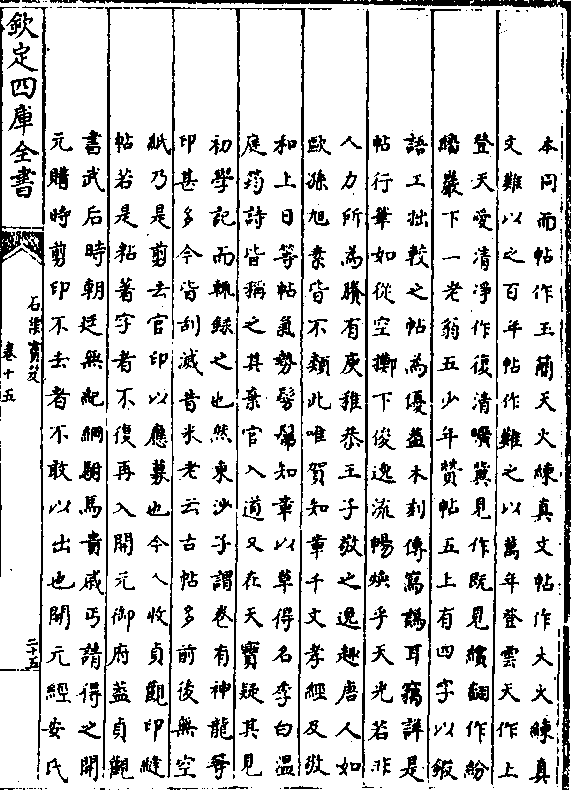 本同而帖作玉蘭天火練真文帖作大火練真
文難以之百年帖作難之以萬年登雲天作上
登天愛清淨作復清曠冀見作既見繽翻作紛
繙巖下一老翁五少年贊帖五上有四字以緞
語工拙較之帖為優盖木刻傳寫譌耳竊詳是
帖行筆如從空擲下俊逸流暢煥乎天光若非
人力所為賸有庾稚恭王子敬之逸趣唐人如
歐孫旭素皆不類此唯賀知章千文孝經及敬
和上日等帖氣勢髣髴知章以草得名李白温
庭筠詩皆稱之其棄官入道又在天寳疑其見
初學記而輒錄之也然東沙子謂卷有神龍等
印甚多今皆刮滅昔米老云古帖多前後無空
紙乃是剪去官印以應募也今人收貞觀印縫
帖若是粘著字者不復再入開元御府蓋貞觀
書武后時朝廷無紀綱駙馬貴戚丐請得之開
元購時剪印不去者不敢以出也開元經安氏
欽定四庫全書
石渠寶笈
卷十五
二十五